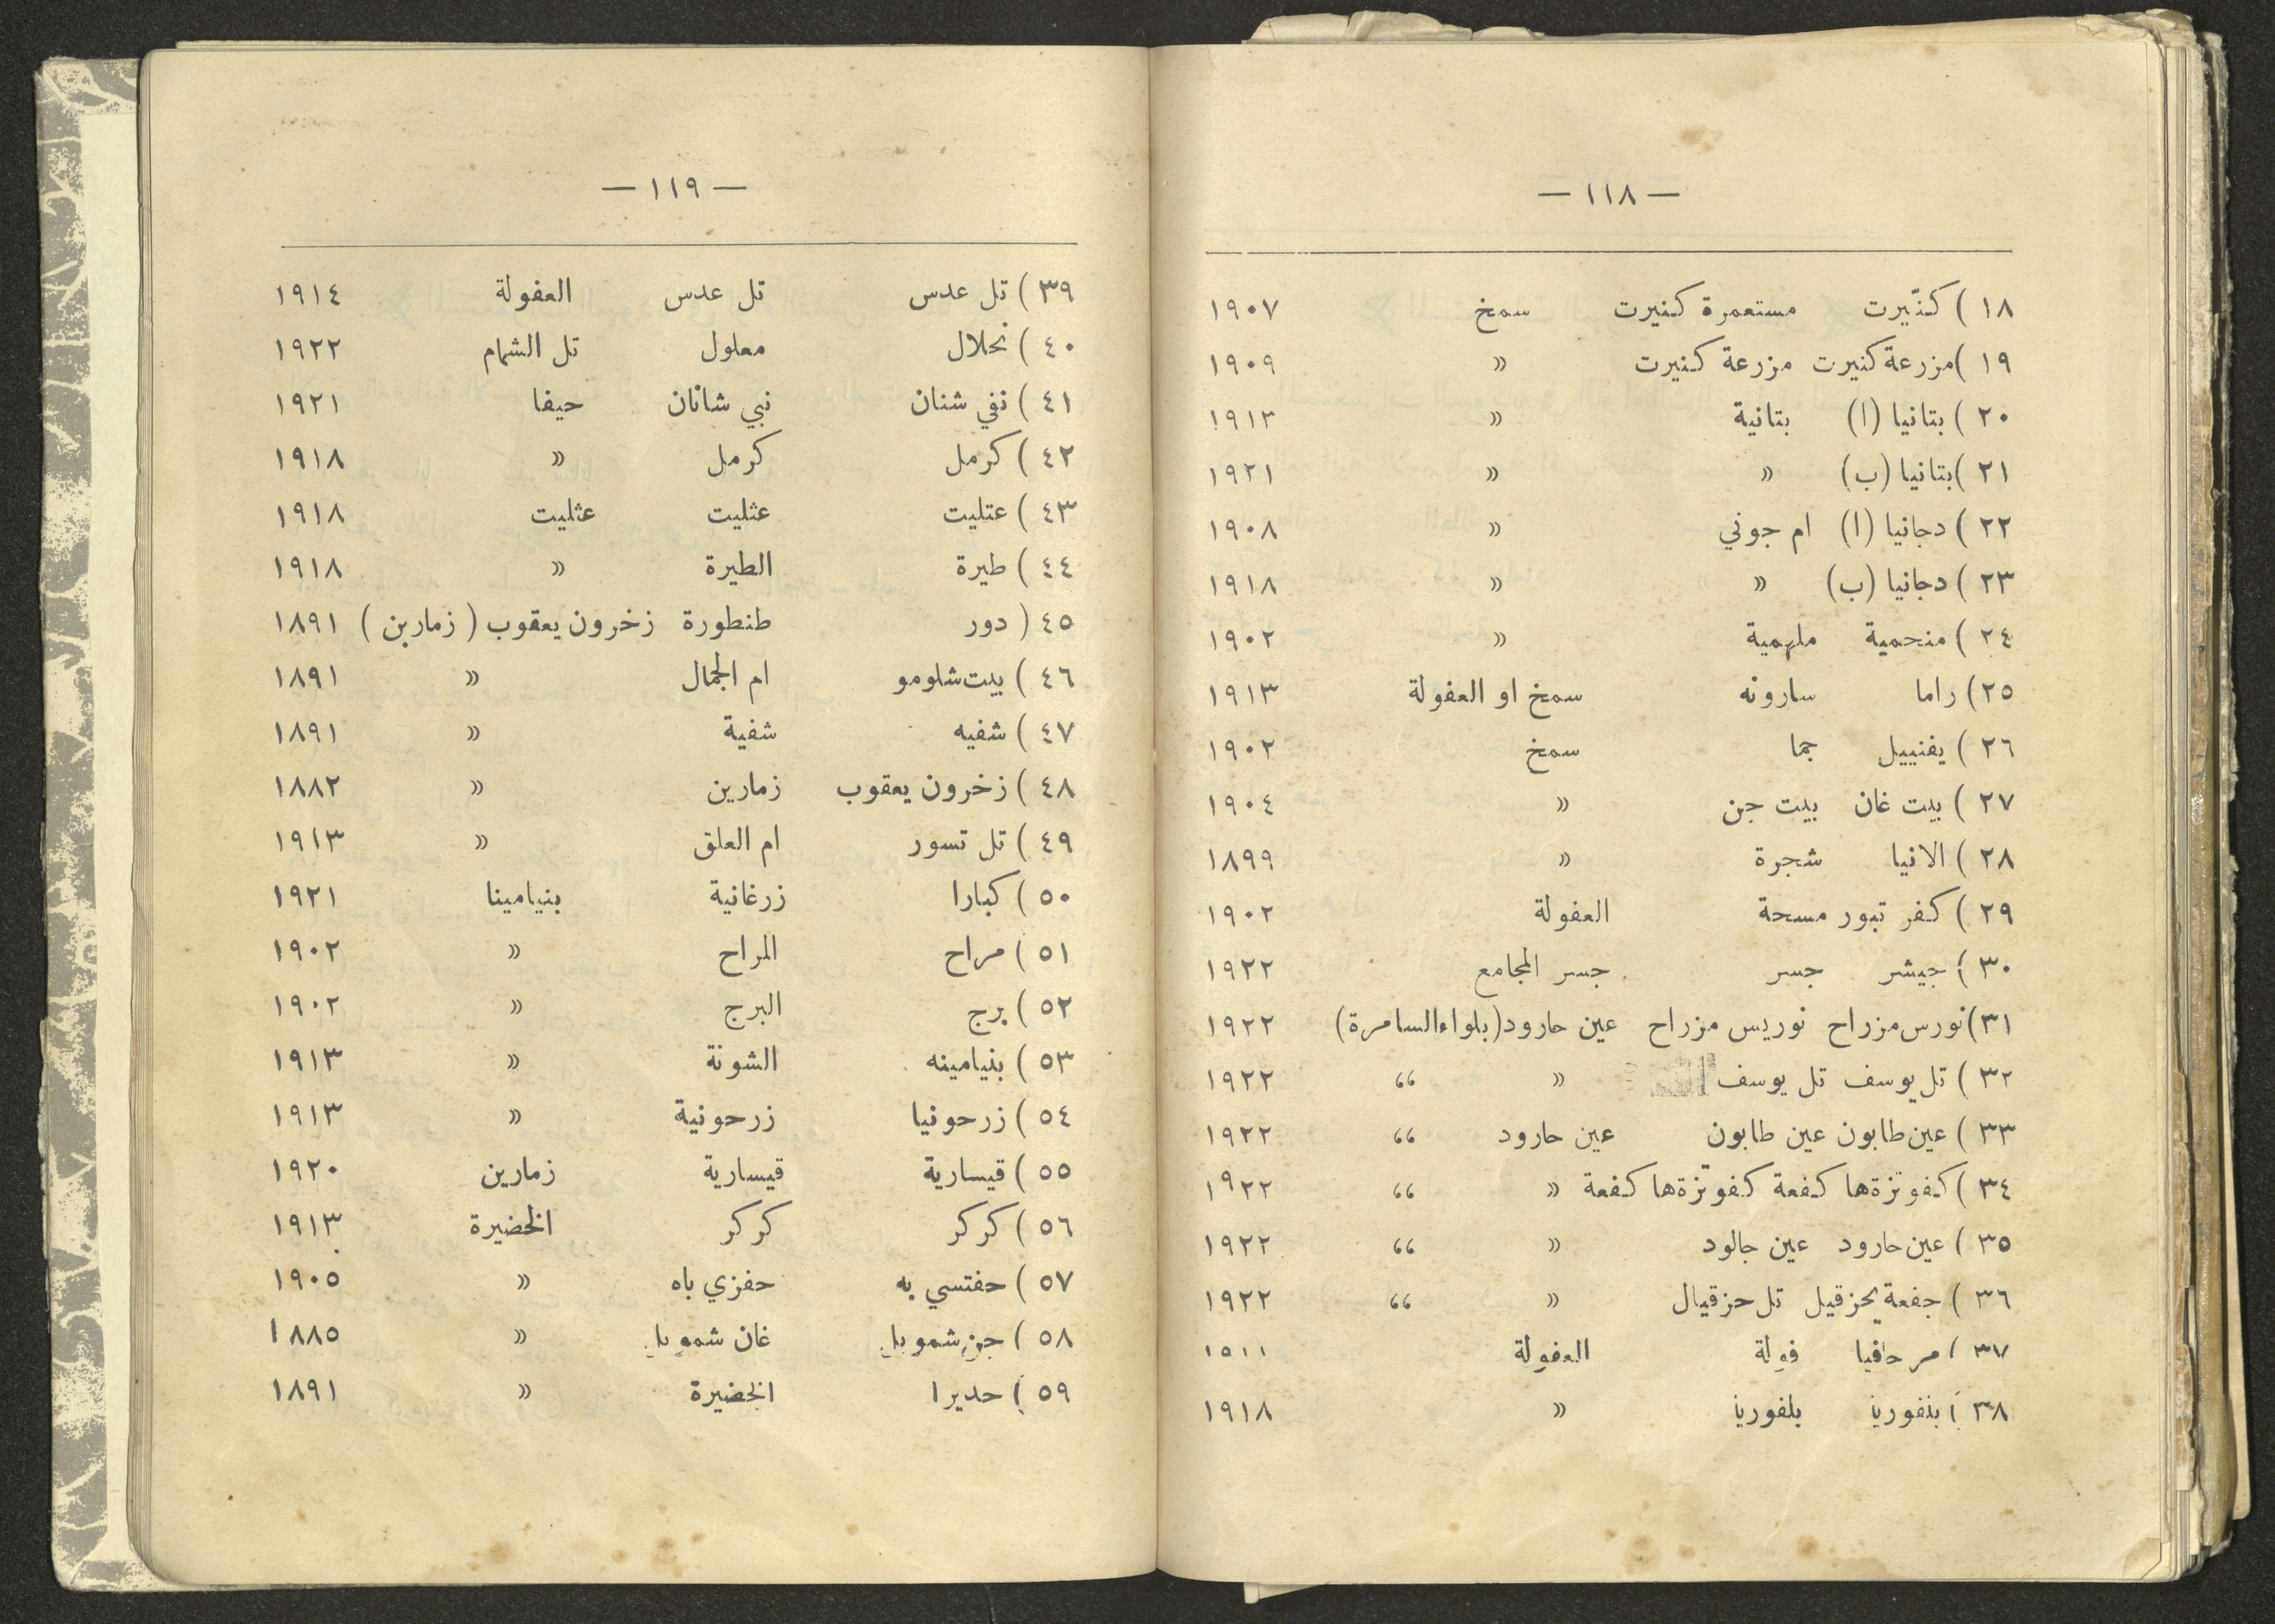 — ١١٨ —
١٨ ) كنّيرت مستعمرة كنيرت سمخ ١٩٠٧
١٩ )مزرعة كنيرت مزرعة كنيرت » ١٩٠٩
٢٠ ) بتانيا (ا) بتانية » ١٩١٣
٢١ )بتانيا (ب) » » ١٩٢١
٢٢ ) دجانيا (ا) ام جوني » ١٩٠٨
٢٣ ) دجانيا (ب) » » ١٩١٨
٢٤ ) منحمية ملهمية » ١٩٠٢
٢٥) راما سارونه سمخ او العفولة ١٩١٣
٢٦ ) يفنييل جما سمخ ١٩٠٢
٢٧ ) بيت غان بيت جن » ١٩٠٤
٢٨ ) الانيا شجرة » ١٨٩٩
٢٩ ) كفر تبور مسحة العفولة ١٩٠٢
٣٠ ) جيشر جسر جسر المجامع ١٩٢٢
٣١)نورس مزراح نوريس مزراح عين حارود(بلواء السامرة) ١٩٢٢
٣٢ ) تل يوسف تل يوسف » “ ١٩٢٢
٣٣ ) عين طابون عين طابون عين حارود “ ١٩٢٢
٣٤ )كفوتزةها كفعة كفوتّزةها كفعة » “ ١٩٢٢
٣٥ ) عين حارود عين جالود » “ ١٩٢٢
٣٦ ) جفعة يحزقيل تل حزقيال » “ ١٩٢٢
٣٧ ) مرحافيا فولة العفولة
٣٨ ) بلفوريا بلفوريا » ١٩١٨
— ١١٩ —
٣٩ ) تل عدس تل عدس العفولة ١٩١٤
٤٠ ) نحلال معلول تل الشمام ١٩٢٢
٤١ ) نفي شنان نبي شانان حيفا ١٩٢١
٤٢ ) كرمل كرمل » ١٩١٨
٤٣ ) عتليت عثليت عثليت ١٩١٨
٤٤ ) طيرة الطيرة » ١٩١٨
٤٥ ( دور طنطورة زخرون يعقوب ( زمارين ) ١٨٩١
٤٦ ) بيت شلومو ام الجمال » ١٨٩١
٤٧ ) شفيه شفية » ١٨٩١
٤٨ ) زخرون يعقوب زمارين » ١٨٨٢
٤٩ ) تل تسور ام العلق » ١٩١٣
٥٠ ) كبارا زرغانية بنيامينا ١٩٢١
٥١ ) مراح المراح » ١٩٠٢
٥٢ ) برج البرج » ١٩٠٢
٥٣ ) بنيامينه الشونة » ١٩١٣
٥٤ ) زرحونيا زرحونية » ١٩١٣
٥٥ ) قيسارية قيسارية زمارين ١٩٢٠
٥٦ ) كركر كركر الخضيرة ١٩١٣
٥٧ ) حفتسي به حفزي باه » ١٩٠٥
٥٨ ) جن شموىل غان شموىل » ١٨٨٥
٥٩ ) حديرا الخضيرة » ١٨٩١